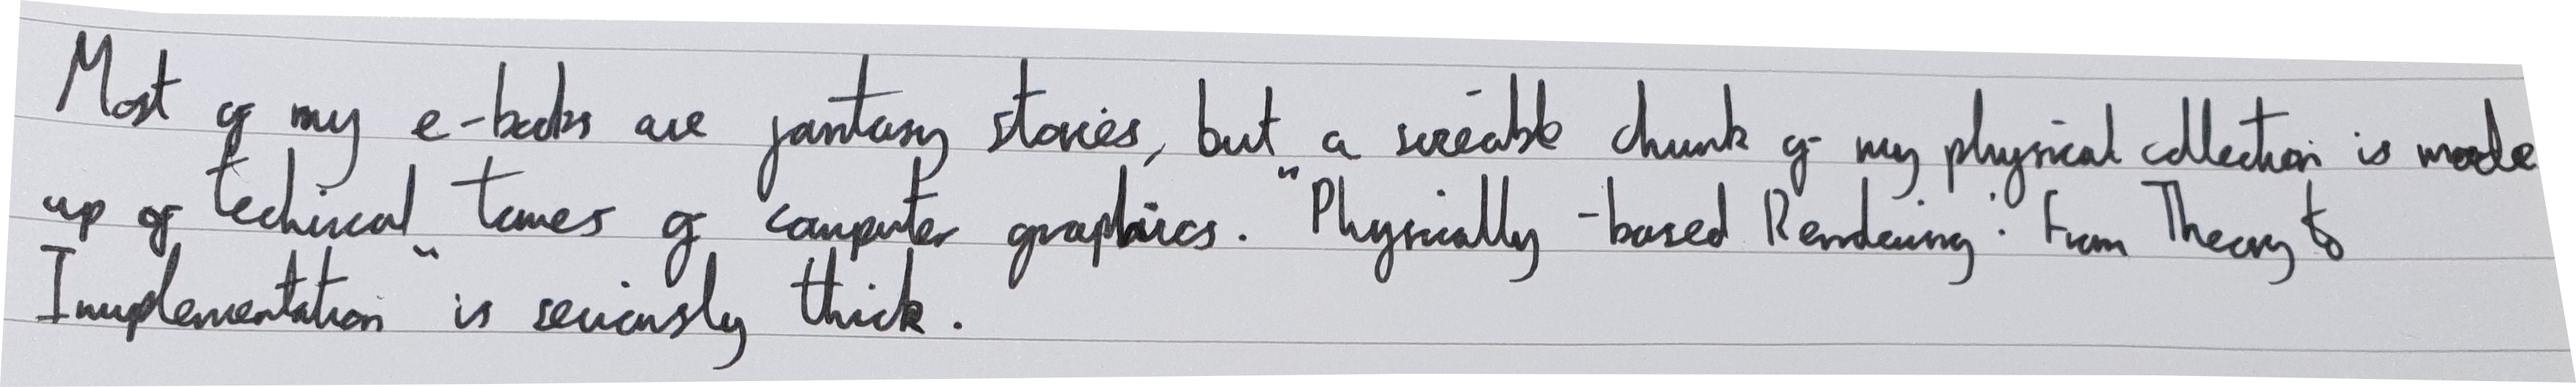 Most of my e-books are fantasy stories, but a sizeable chunk of my physical collection is made
up of techical tomes of computer graphics. "Physically-based Rendering: From Theory to
Implementation" is seriously thick.